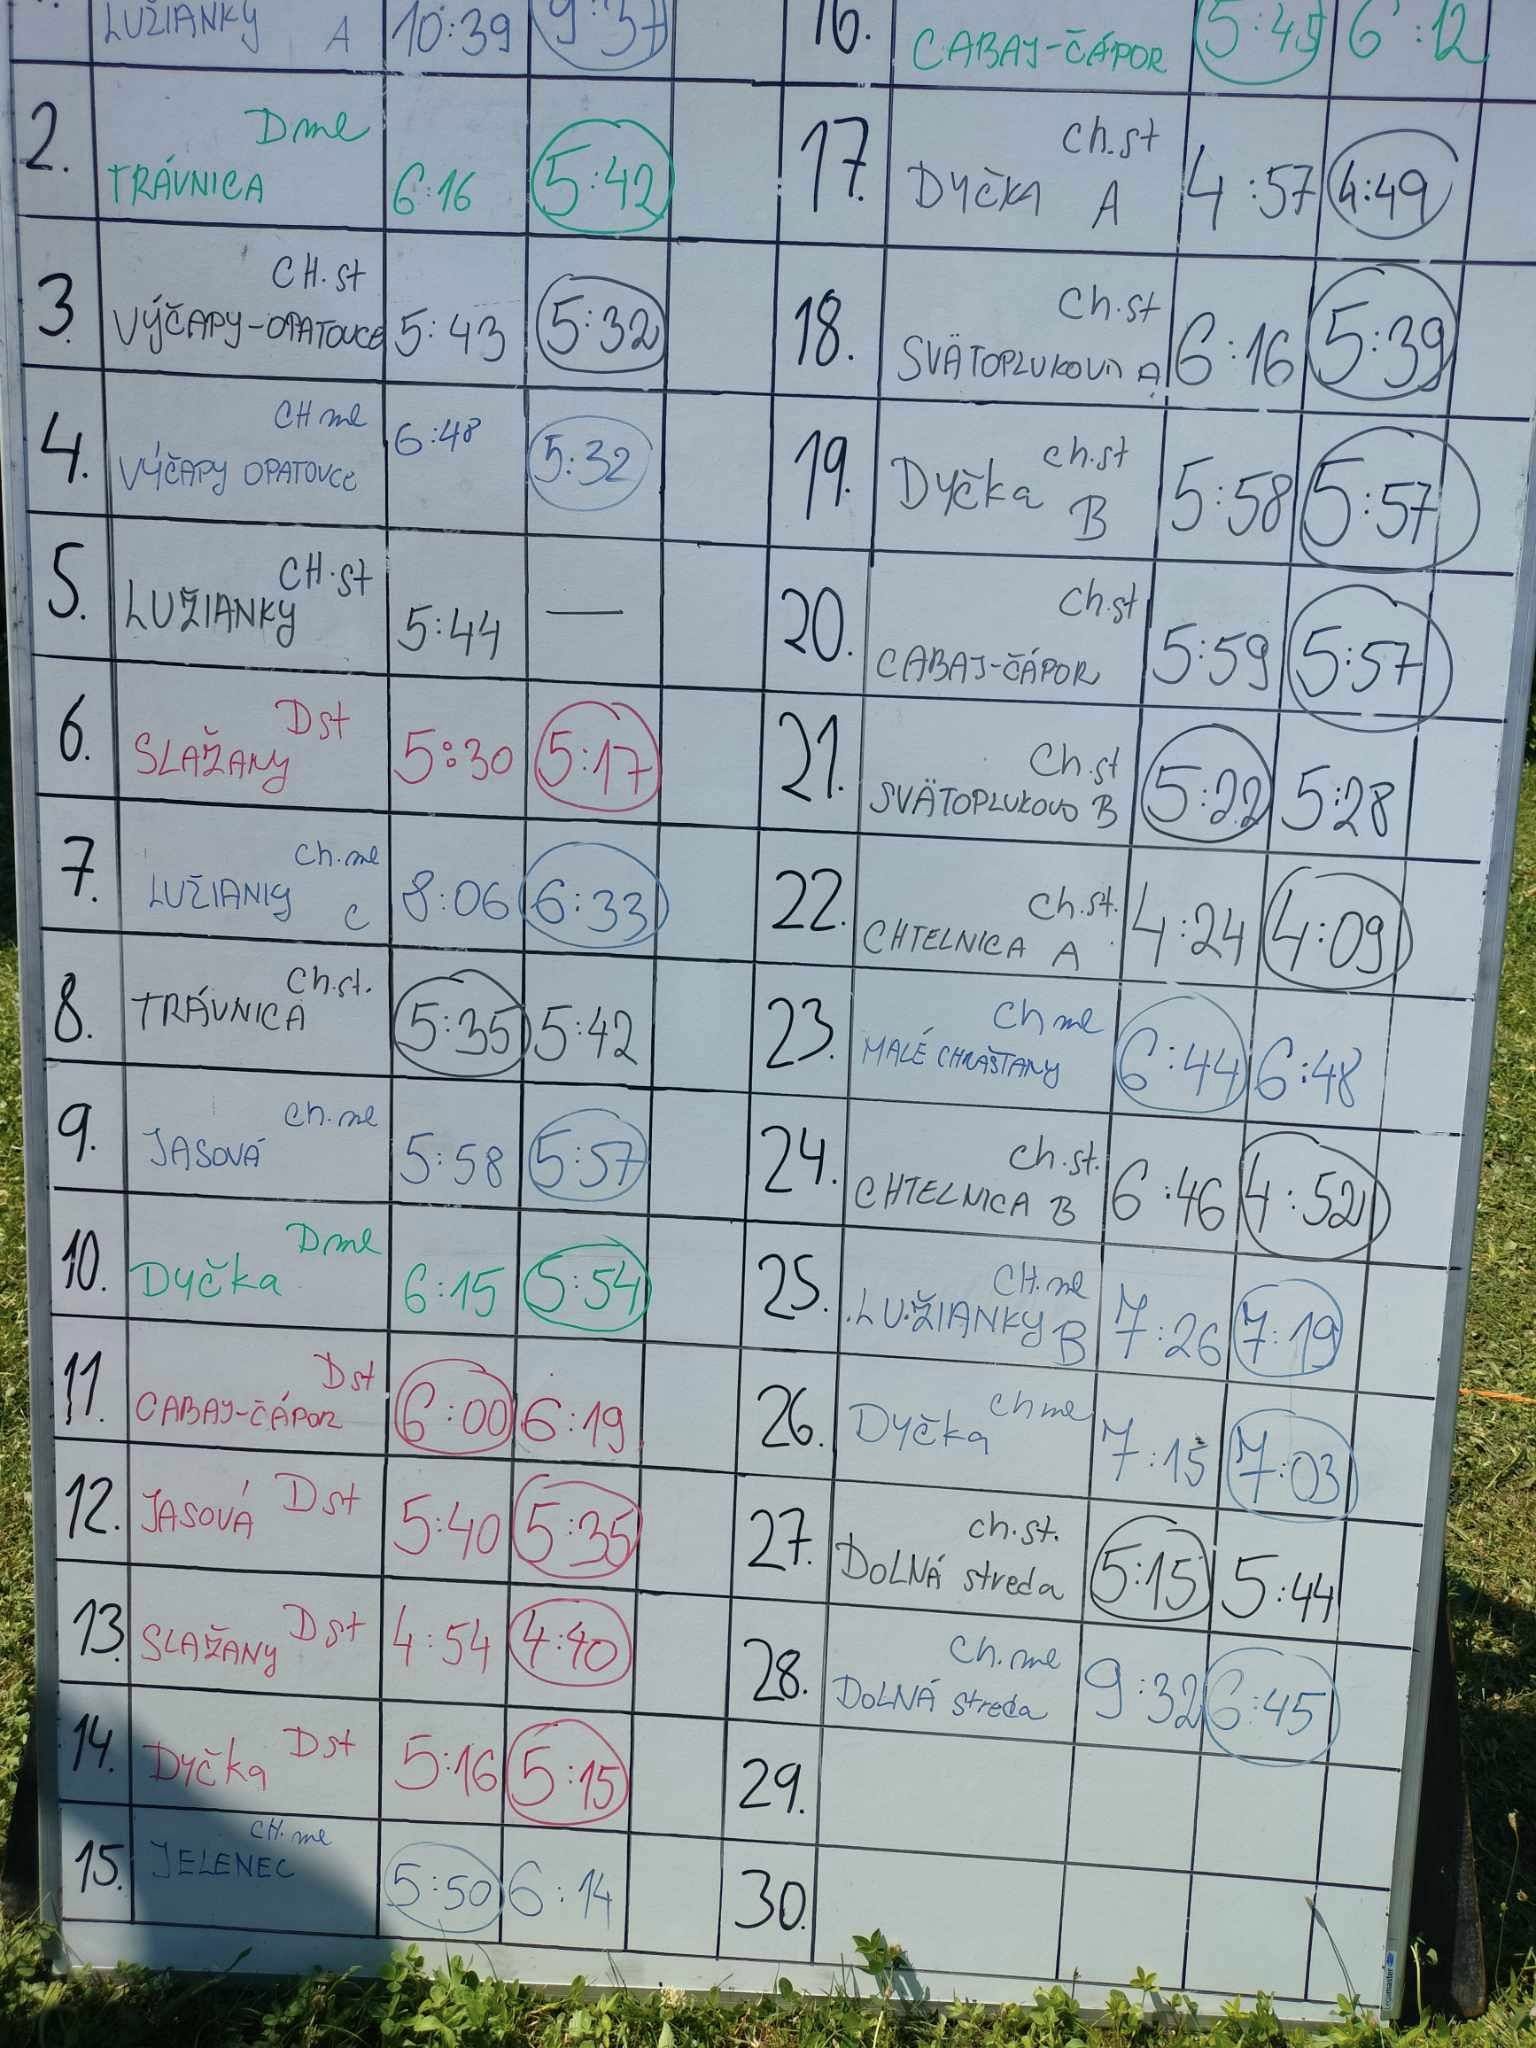 LUŽIANKY A 10:39 9:37
2. D ml
TRÁVNICA 6:16 5:42
3. CH.st
VÝČAPY-OPATOVCE 5:43 5:32
4. CH ml
VÝČAPY OPATOVCE 6:48 5:32
5. CH.st
LUŽIANKY 5:44 —
6. D st
SLAŽANY 5:30 5:17
7. Ch.ml
LUŽIANKY C 8:06 6:33
8. Ch.st.
TRÁVNICA 5:35 5:42
9. Ch.ml
JASOVÁ 5:58 5:57
10. D ml
Dyčka 6:15 5:54
11. D st
CABAJ-ČÁPOR 6:00 6:19
12. JASOVÁ D st 5:40 5:35
13. SLAŽANY D st 4:54 4:40
14. Dyčka D st 5:16 5:15
15. CH.ml
JELENEC 5:50 6:14
16. CABAJ-ČÁPOR 5:45 6:12
17. Ch.st
DYČKA A 4:57 4:49
18. Ch.st
SVÄTOPLUKOVO A 6:16 5:39
19. Ch.st
Dyčka B 5:58 5:57
20. Ch.st
CABAJ-ČÁPOR 5:59 5:57
21. Ch.st
SVÄTOPLUKOVO B 5:22 5:28
22. Ch.st.
CHTELNICA A 4:24 4:09
23. Ch ml
MALÉ CHRAŠTANY 6:44 6:48
24. Ch.st.
CHTELNICA B 6:46 4:52
25. CH.ml
LUŽIANKY B 7:26 7:19
26. Ch ml
Dyčka 7:15 7:03
27. Ch.st.
DOLNÁ streda 5:15 5:44
28. Ch.ml
DOLNÁ streda 9:32 6:45
29.
30.
Legamaster